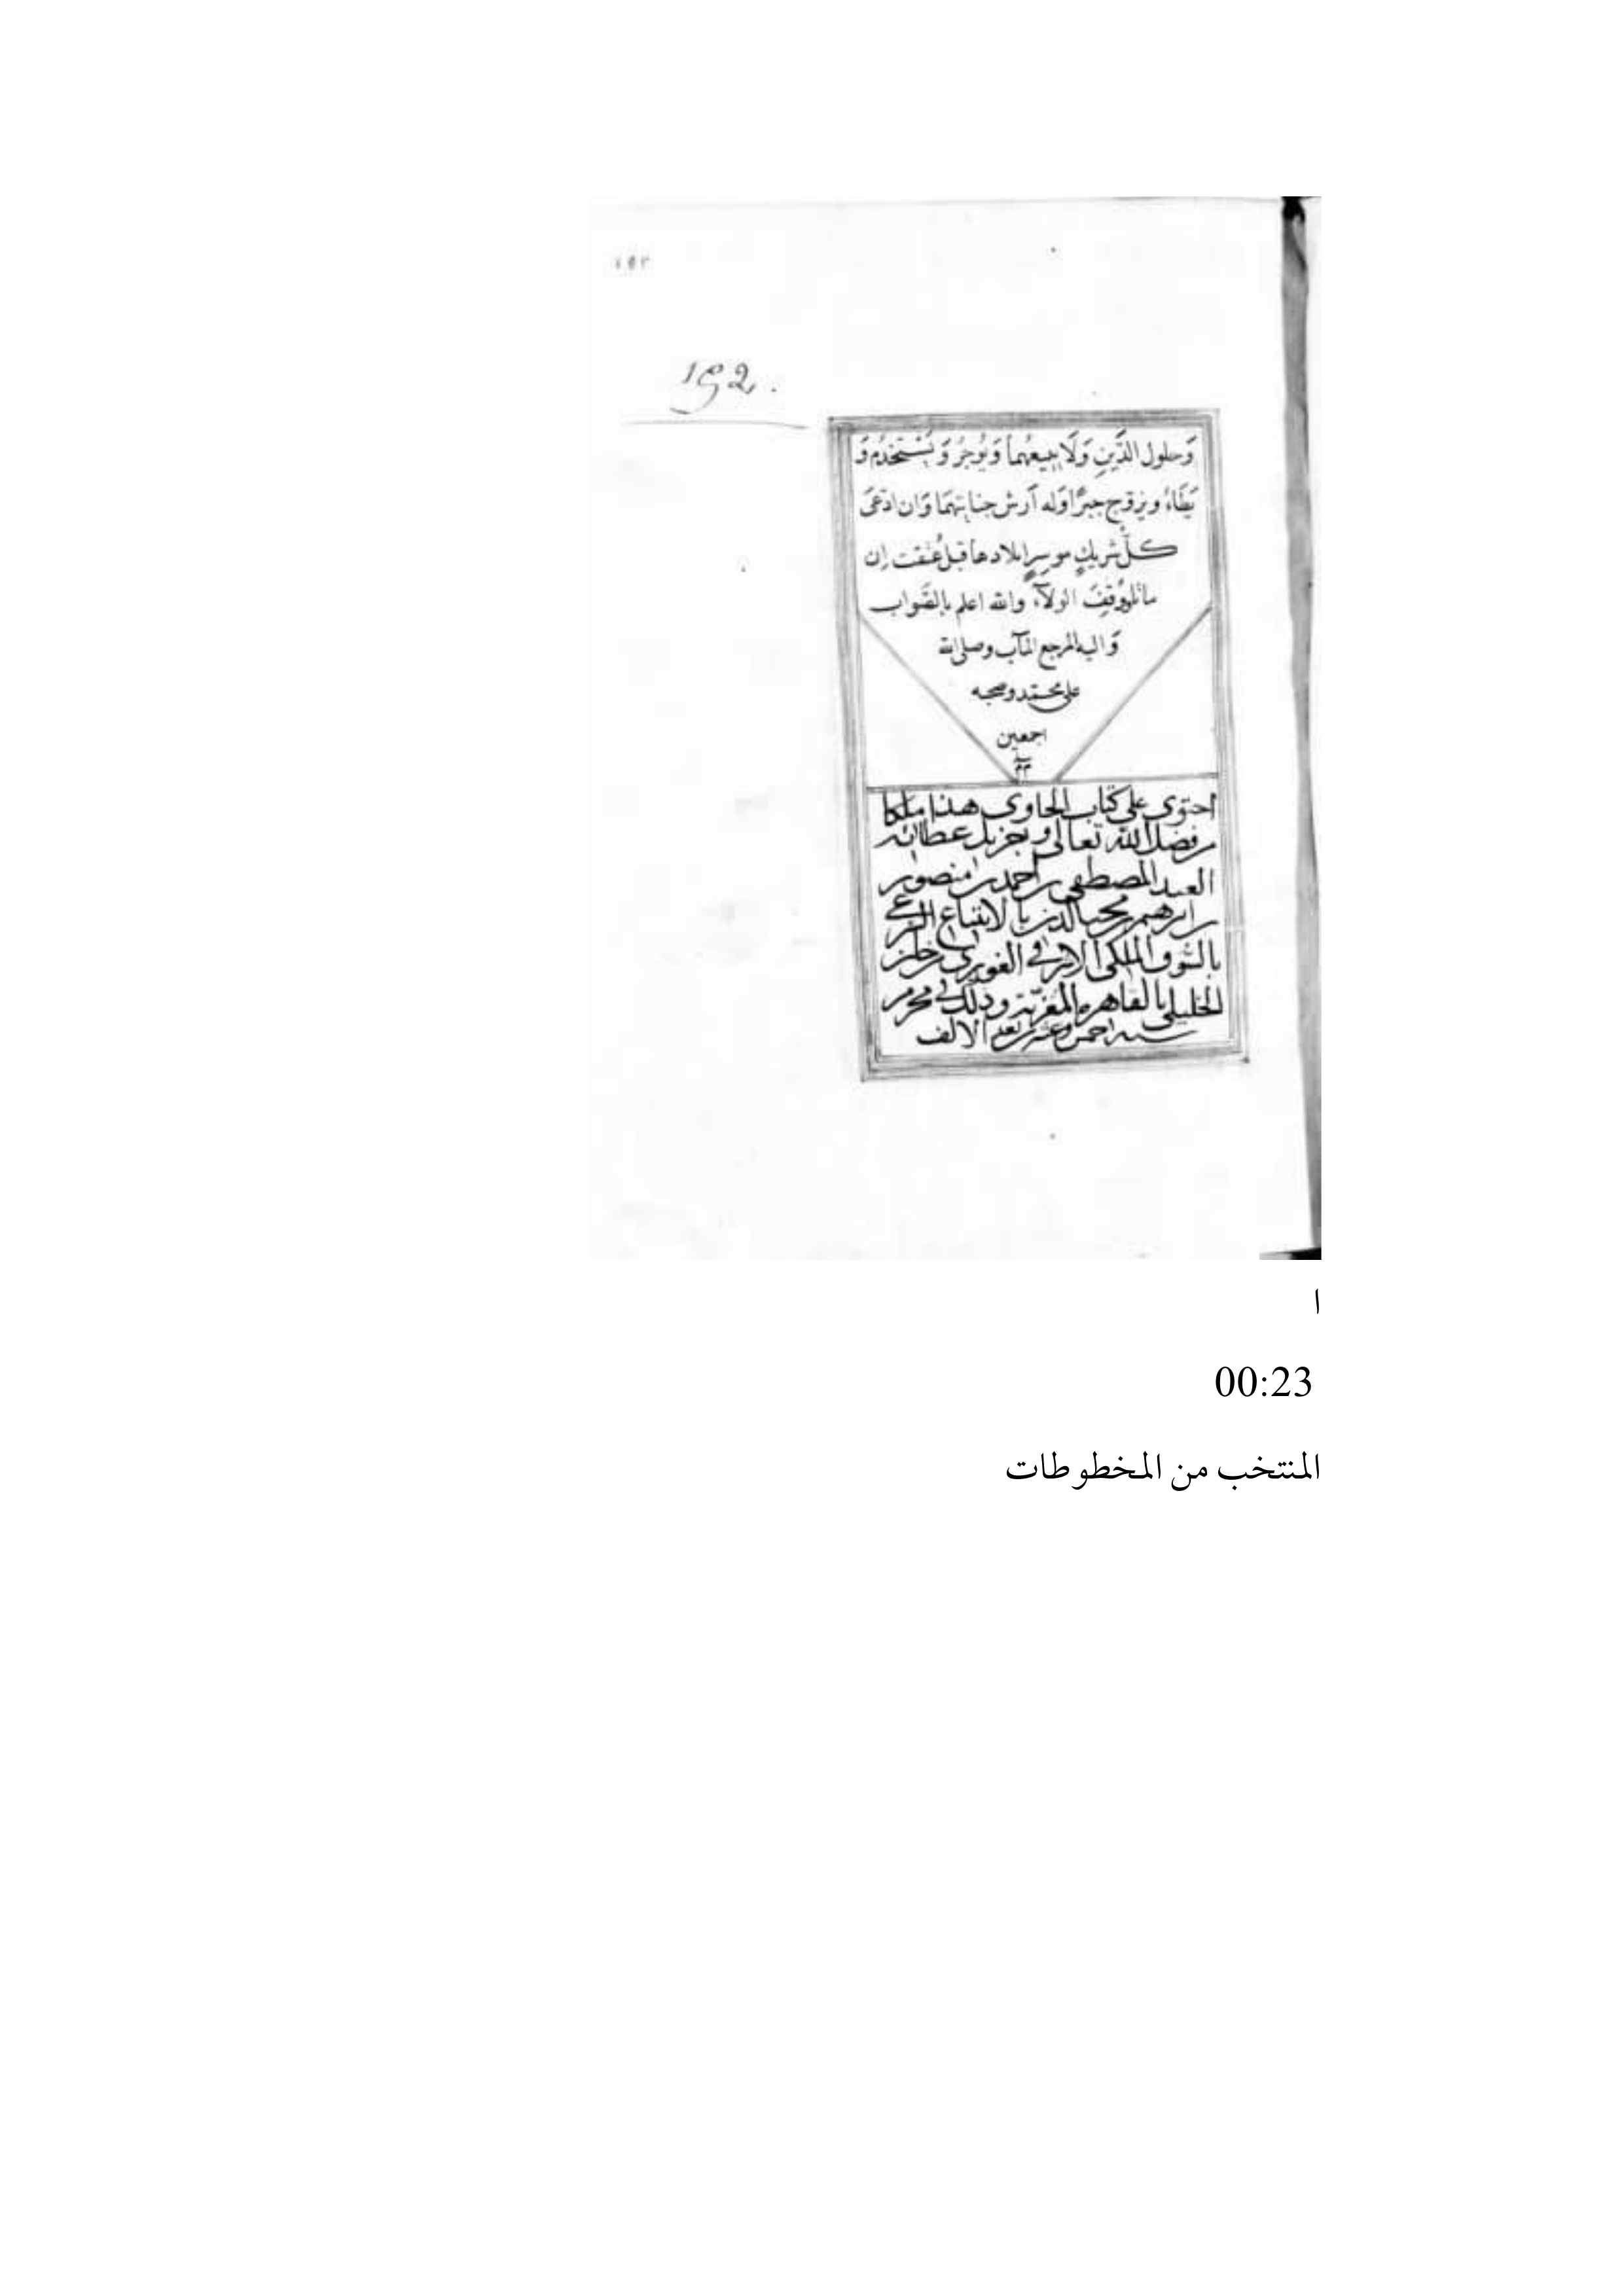 ١٩٢
192.
وَحلول الدَّينِ وَلَا يبيعُهما وَيُوجِرُ وَيَسْتَخْدُم وَ
يَطَاءُ ويزوّج جبرًا وَله اَرش جنايتهمَا وَان ادّعَى
كلّ شريكٍ موسِرٍ ايلادها قبل عُتقت اِن
ماتا ووُقِفَ الولآء والله اعلم بالصَّواب
وَاليه المرجع المآب وصلى الله
على محمّد وصحبه
اجمعين
احتوى على كتاب الحاوى هذا ملكا
من فضل الله تعالى وجزيل عطائه
العبد المصطفى بن احمد بن منصور
بن ابرهيم بن محب الدين بالابتياع الشرعى
بالسوق الملكى الاشرفى الغورى بخان
الخليلى بالقاهره المعزية وذلك فى محرم
سنه احدى وعشرين بعد الالف
ا
00:23
المنتخب من المخطوطات